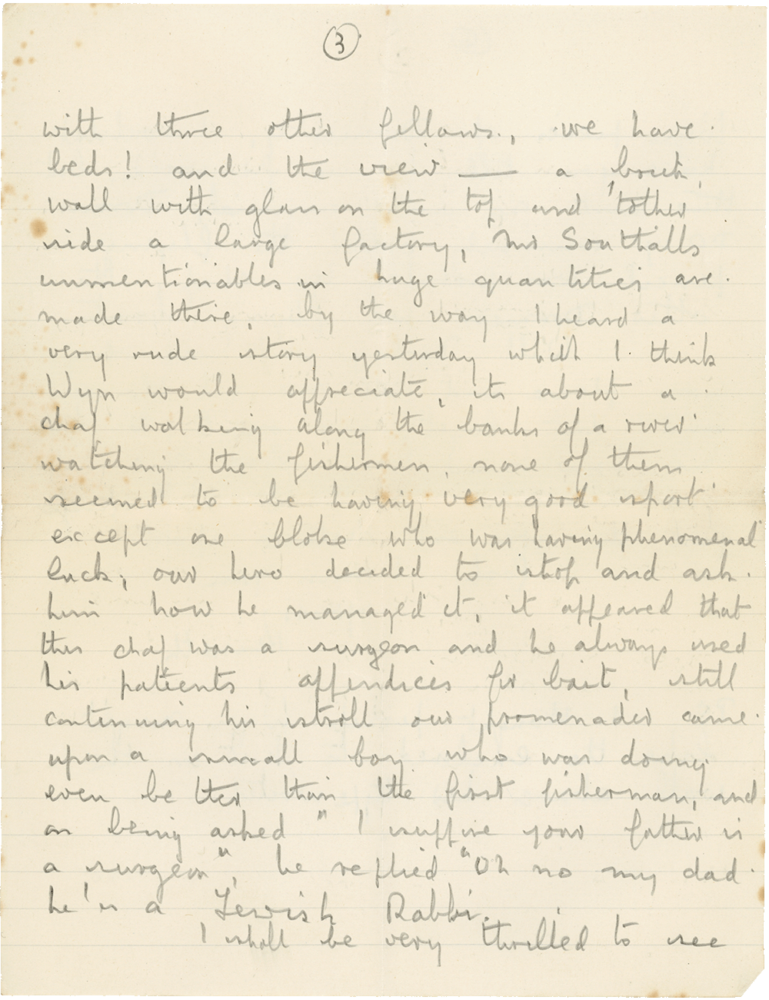 3
with three other fellows., we have
beds! and the view — a brick
wall with glass on the top and 'tother
side a large factory, Mr Southalls
unmentionables in huge quantities are
made there, by the way I heard a
very rude story yesterday which I think
Wyn would appreciate, its about a
chap walking along the banks of a river
watching the fishermen, none of them
seemed to be having very good sport
except one bloke who was having phenomenal
luck; our hero decided to stop and ask
him how he managed it, it appeared that
this chap was a surgeon and he always used
his patients appendices for bait, still
continuing his stroll our promenader came
upon a small boy who was doing
even better than the first fisherman, and
on being asked "I suppose your father is
a surgeon", he replied "Oh no my dad
he's a Jewish Rabbi.
I shall be very thrilled to see